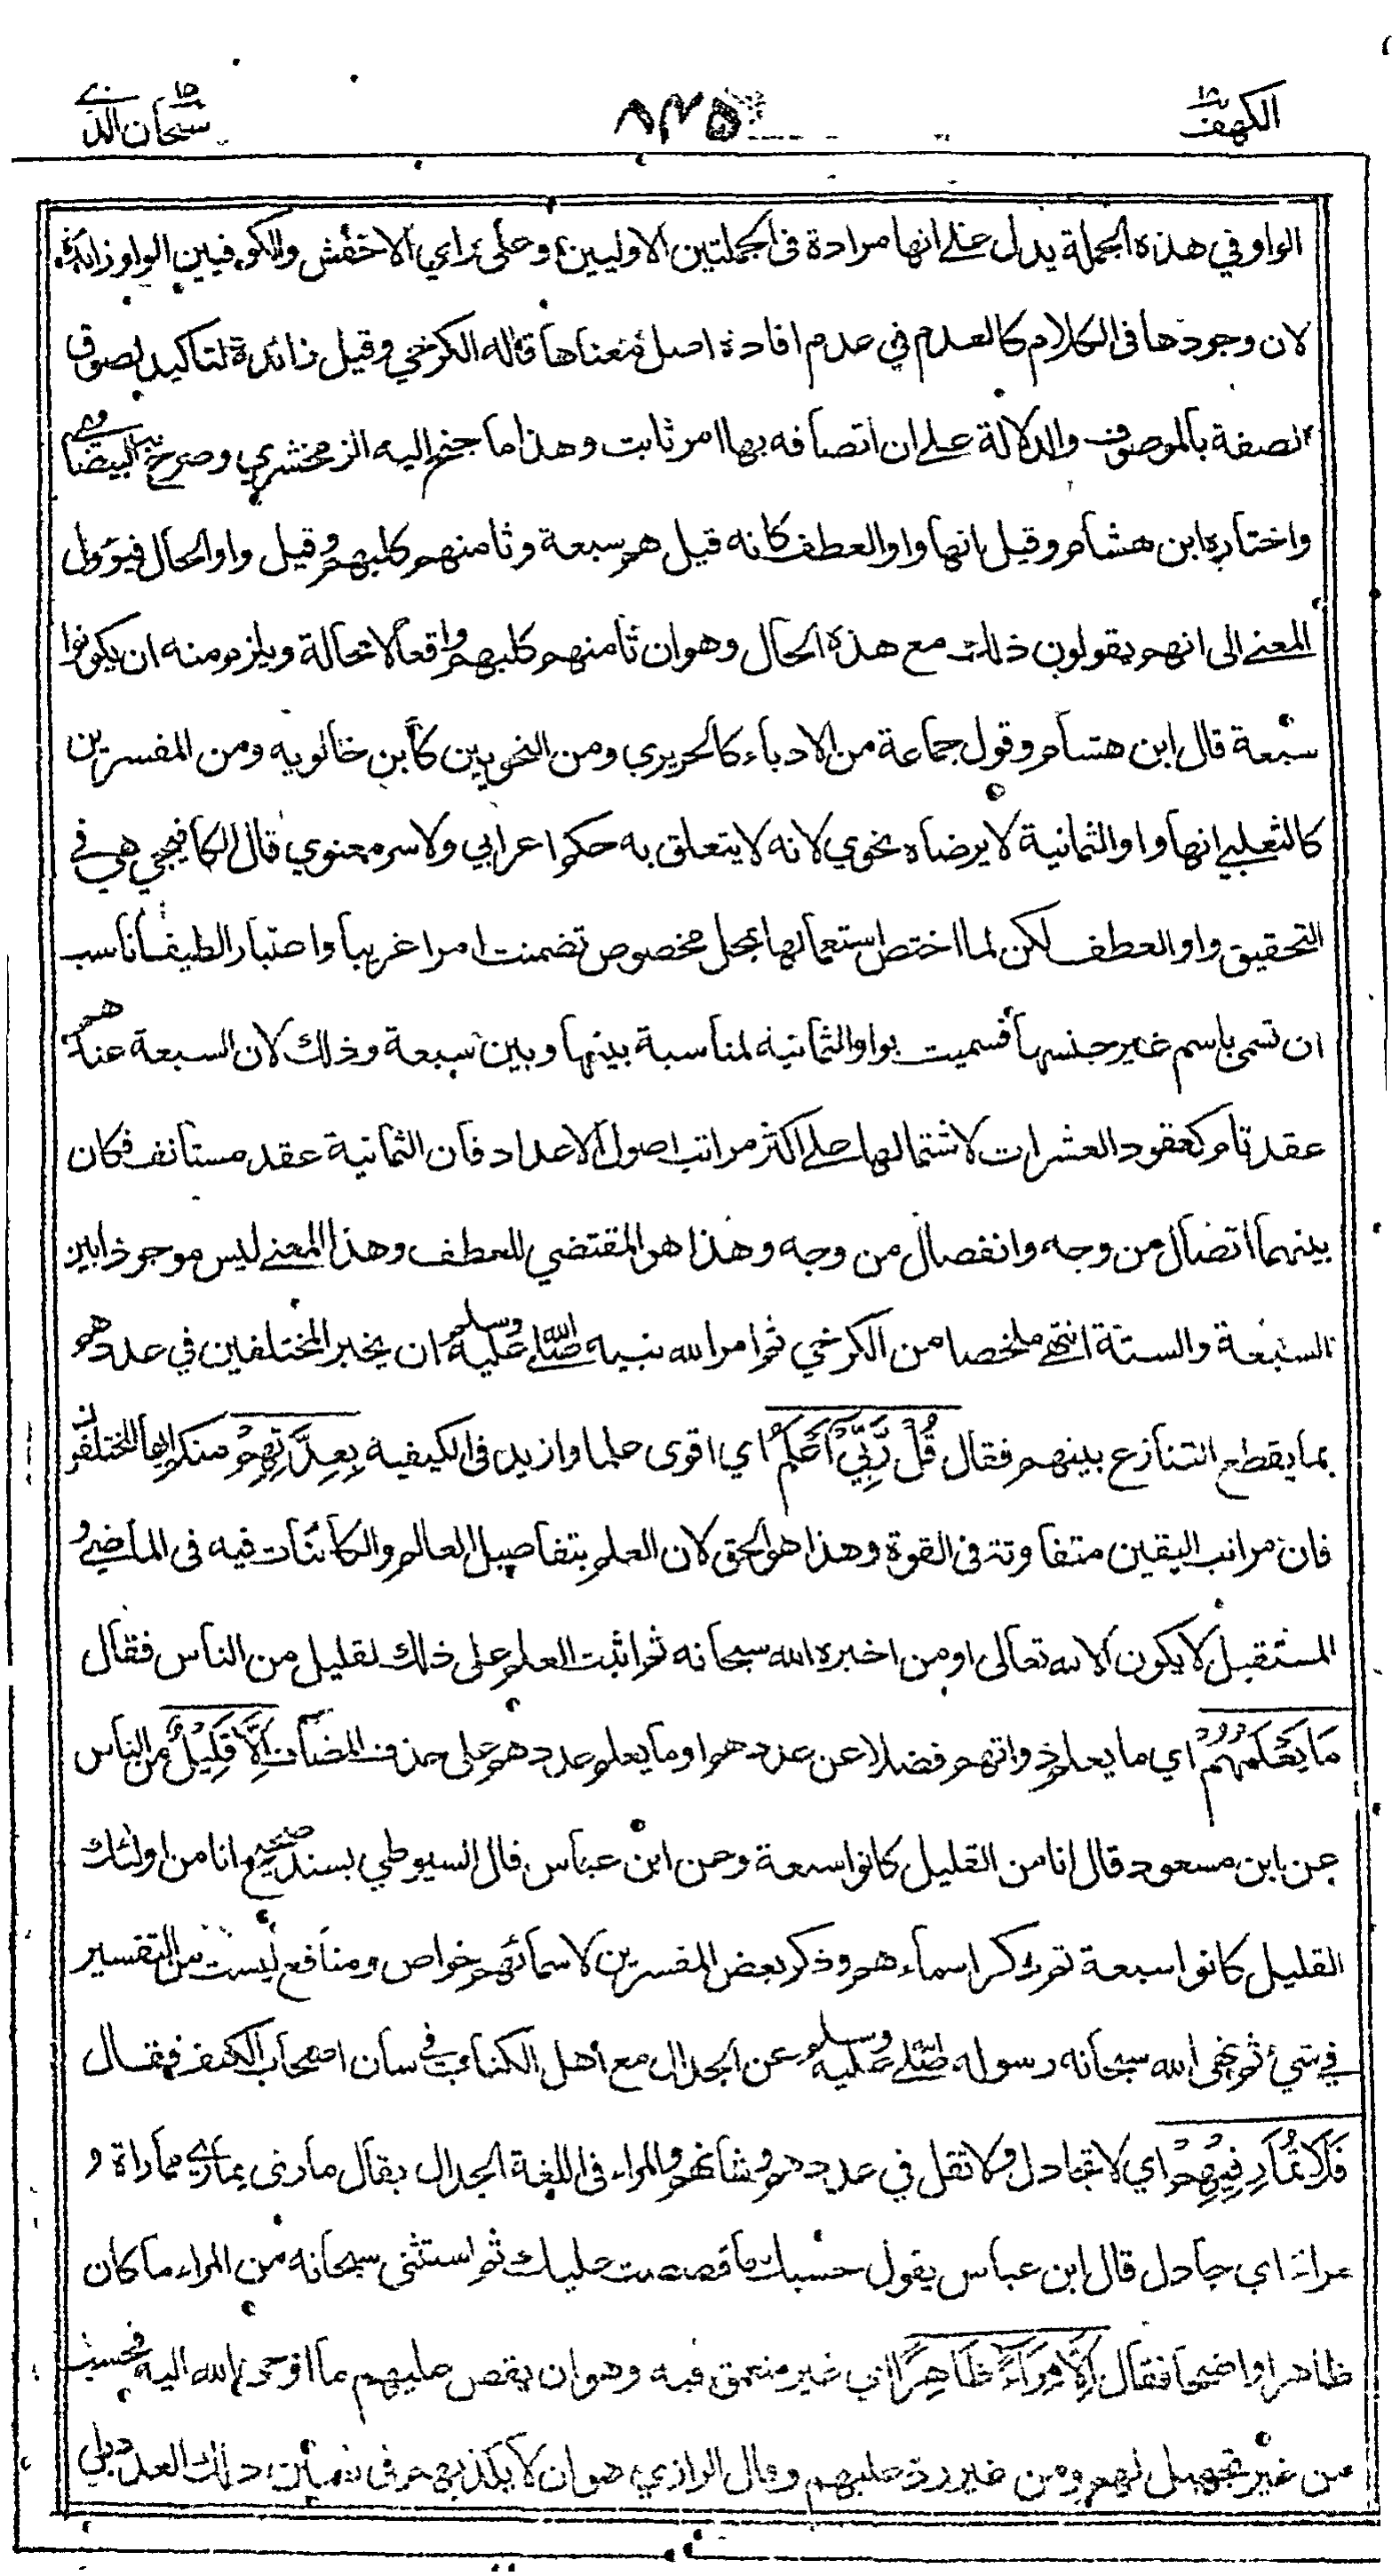 الكهف ١٨
٨٣٥
سبحان الذي ١٥
الواو في هذه الجملة يدل على انها مرادة فى الجملتين الاوليين وعلى رأي الاخفش والكوفيين الواو زائدة
لان وجودها فى الكلام كالعدم في عدم افادة اصل معناها قاله الكرخي وقيل زائدة لتاكيد لصوق
الصفة بالموصوف والدلالة على ان اتصافه بها امر ثابت وهذا ما جنح اليه الزمخشري وصرح به البيضاوي
واختاره ابن هشام وقيل انها واو العطف كانه قيل هم سبعة وثامنهم كلبهم وقيل واو الحال فيؤول
المعنى الى انهم يقولون ذلك مع هذه الحال وهو ان ثامنهم كلبهم واقعا لا محالة ويلزم منه ان يكونوا
سبعة قال ابن هشام وقول جماعة من الادباء كالحريري ومن النحويين كابن خالويه ومن المفسرين
كالثعلبي انها واو الثمانية لا يرضاه نحوي لانه لا يتعلق به حكم اعرابي ولا سر معنوي قال الكافيجي هي في
التحقيق واو العطف لكن لما اختص استعمالها بمحل مخصوص تضمنت امرا غريبا واعتبارا لطيفا ناسب
ان تسمى باسم غير جنسها فسميت بواو الثمانيه لمناسبة بينها وبين سبعة وذلك لان السبعة عندهم
عقد تام كعقود العشرات لاشتمالها على اكثر مراتب اصول الاعداد فان الثمانية عقد مستأنف فكان
بينهما اتصال من وجه وانفصال من وجه وهذا هو المقتضي للعطف وهذا المعنى ليس موجودا بين
السبعة والستة انتهى ملخصا من الكرخي ثم امر الله نبيه صلى الله عليه وسلم ان يخبر المختلفين في عددهم
بما يقطع التنازع بينهم فقال قُلْ رَّبِّيْ اَعْلَمُ اي اقوى علما وازيد فى الكيفية بِعِدَّتِهِمْ منكم ايها المختلفون
فان مراتب اليقين متفاوتة فى القوة وهذا هو الحق لان العلم بتفاصيل العالم والكائنات فيه فى الماضي و
المستقبل لا يكون الا لله تعالى او من اخبره الله سبحانه ثم اثبت العلم على ذلك لقليل من الناس فقال
مَا يَعْلَمُهُمْ اي ما يعلم ذواتهم فضلا عن عددهم او ما يعلم عددهم على حذف المضاف اِلَّا قَلِيْلٌ من الناس
عن ابن مسعود قال انا من القليل كانوا سبعة وعن ابن عباس قال السيوطي بسند صحيح انا من اولئك
القليل كانوا سبعة ثم ذكر اسماءهم وذكر بعض المفسرين لاسمائهم خواص ومنافع ليست من التفسير
في شيء ثم نهى الله سبحانه رسوله صلى الله عليه وسلم عن الجدال مع اهل الكتاب في شان اصحاب الكهف فقال
فَلَا تُمَارِ فِيْهِمْ اي لا تجادل ولا تقل في عددهم وشانهم والمراء فى اللغة الجدال يقال مارى يماري مماراة و
مراء اي جادل قال ابن عباس يقول حسبك ما قصصت عليك ثم استثنى سبحانه من المراء ما كان
ظاهرا واضحا فقال اِلَّا مِرَاءً ظَاهِرًا اي غير متعمق فيه وهو ان يقص عليهم ما اوحى الله اليه فحسب
من غير تجهيل لهم ومن غير رد عليهم وقال الرازي هو ان لا يكذبهم فى تعيين ذلك العدد بل